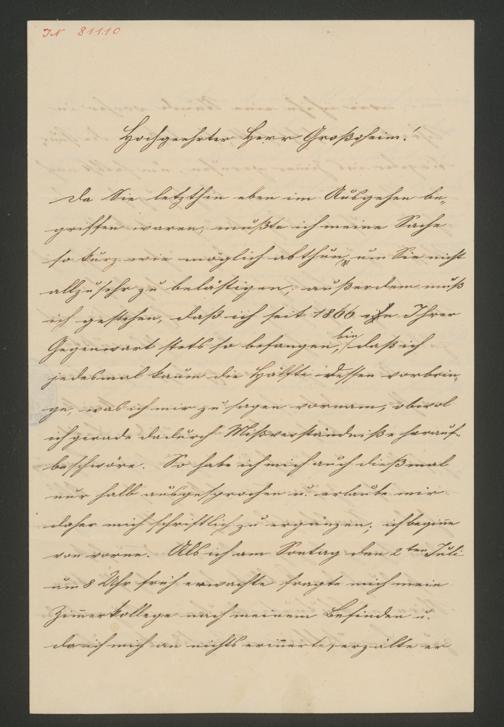 IN 81110
Hochgeehrter Herr Großoheim!
Da Sie letzthin eben im Ausgehen be-
griffen waren, mußte ich meine Sache
so kurz wie möglich abthun, um Sie nicht
allzusehr zu belästigen; außerdem muß
ich gestehen, daß ich seit 1866 in Ihrer
Gegenwart stets so befangen bin, daß ich
jedesmal kaum die Hälfte dessen vorbrin-
ge, was ich mir zu sagen vornam, obwol
ich gerade dadurch Mißverständniße herauf-
beschwöre. So habe ich mich auch dießmal
nur halb ausgesprochen u. erlaube mir
daher mich schriftlich zu ergänzen; ich beginne
von vorne. Als ich am Sontag den 2ten Juli
um 8 Uhr früh erwachte fragte mich mein
Zimerkollege nach meinem Befinden u.
da ich mich an nichts erinerte, erzälte er